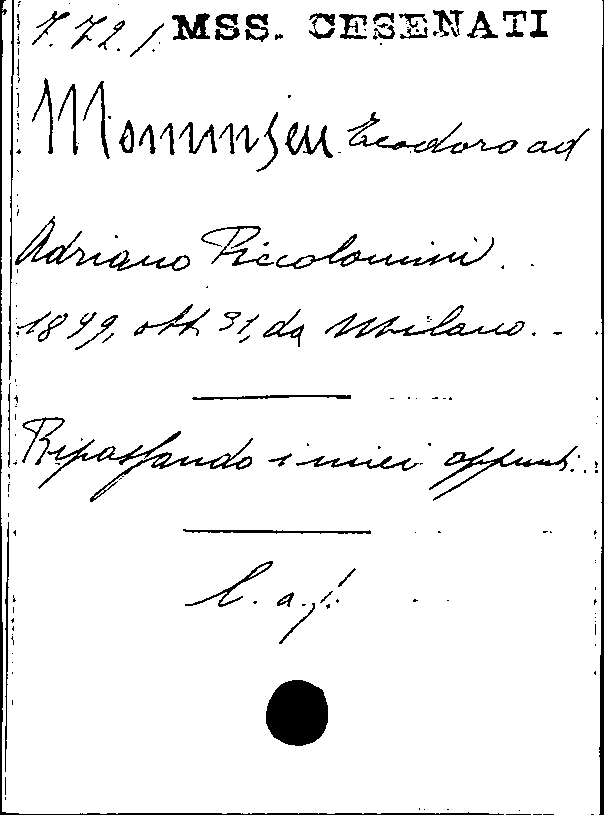 7.72.1. MSS. CESENATI
Mommsen Teodoro ad
Adriano Piccolomini.
1899, ott. 31, da Milano.
Ripassando i miei appunti.
l. a. f.